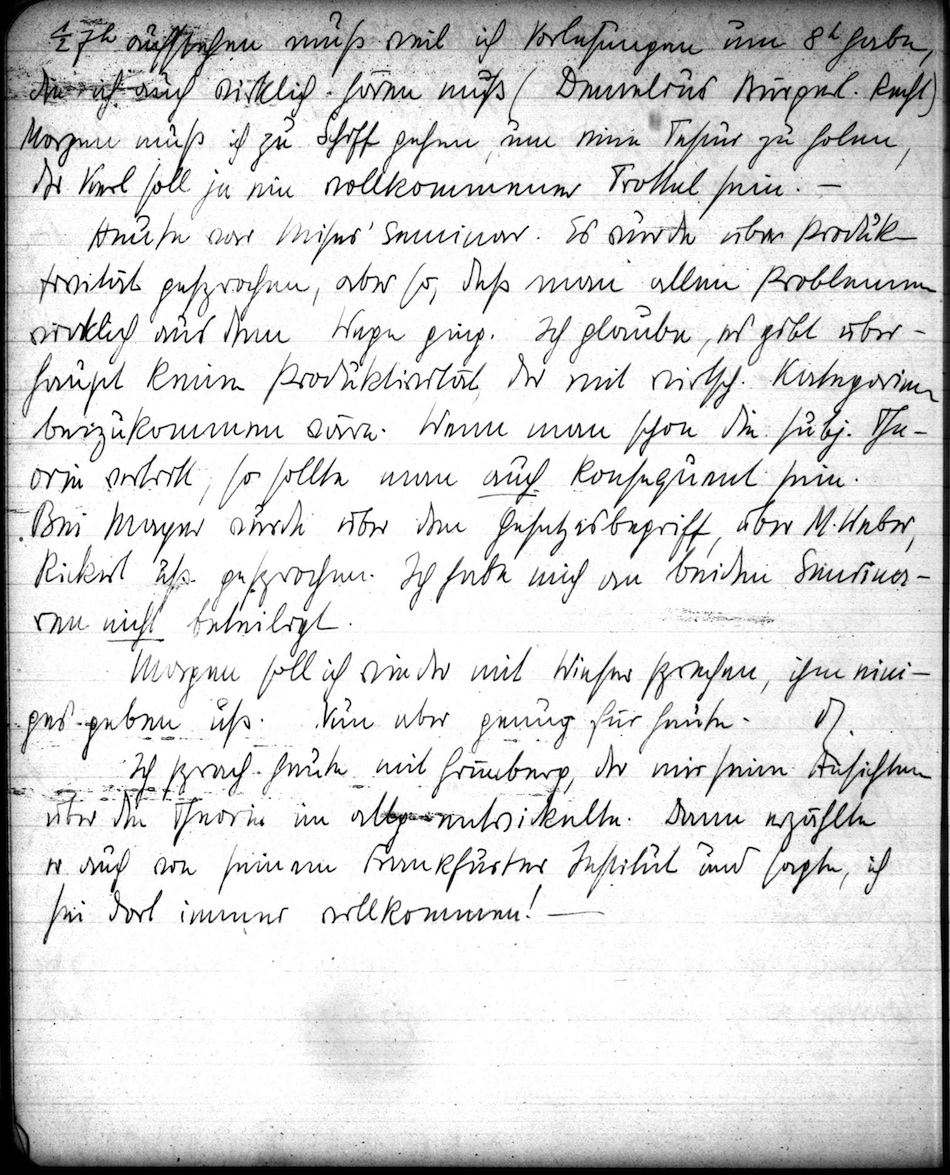 ½ 7h aufstehen muß weil ich Vorlesungen um 8h habe,
die ich auch wirklich hören muß (Demelius Bürgerl. Recht)
Morgen muß ich zu Schiff gehen, um eine Tepur zu holen,
der Kerl soll ja ein vollkommener Trottel sein. —
Heute war Mises' Seminar. Es wurde über Produk-
tivität gesprochen, aber so, daß man allen Problemen
wirklich aus dem Wege ging. Ich glaube, es gibt über-
haupt keine Produktivität, der mit wirtsch. Kategorien
beizukommen wäre. Wenn man schon die subj. The-
orie vertritt, so sollte man auch konsequent sein.
Bei Mayer wurde über den Gesetzesbegriff, über M. Weber,
Rickert usf. gesprochen. Ich habe mich an beiden Semina-
ren nicht beteiligt.
Morgen soll ich wieder mit Wieser sprechen, ihm eini-
ges geben usf. Nun aber genug für heute.
Ich sprach heute mit Grünberg, der mir seine Ansichten
über die Theorie im allg. entwickelte. Dann erzählte
er auch von seinem Frankfurter Institut und sagte, ich
sei dort immer willkommen! —